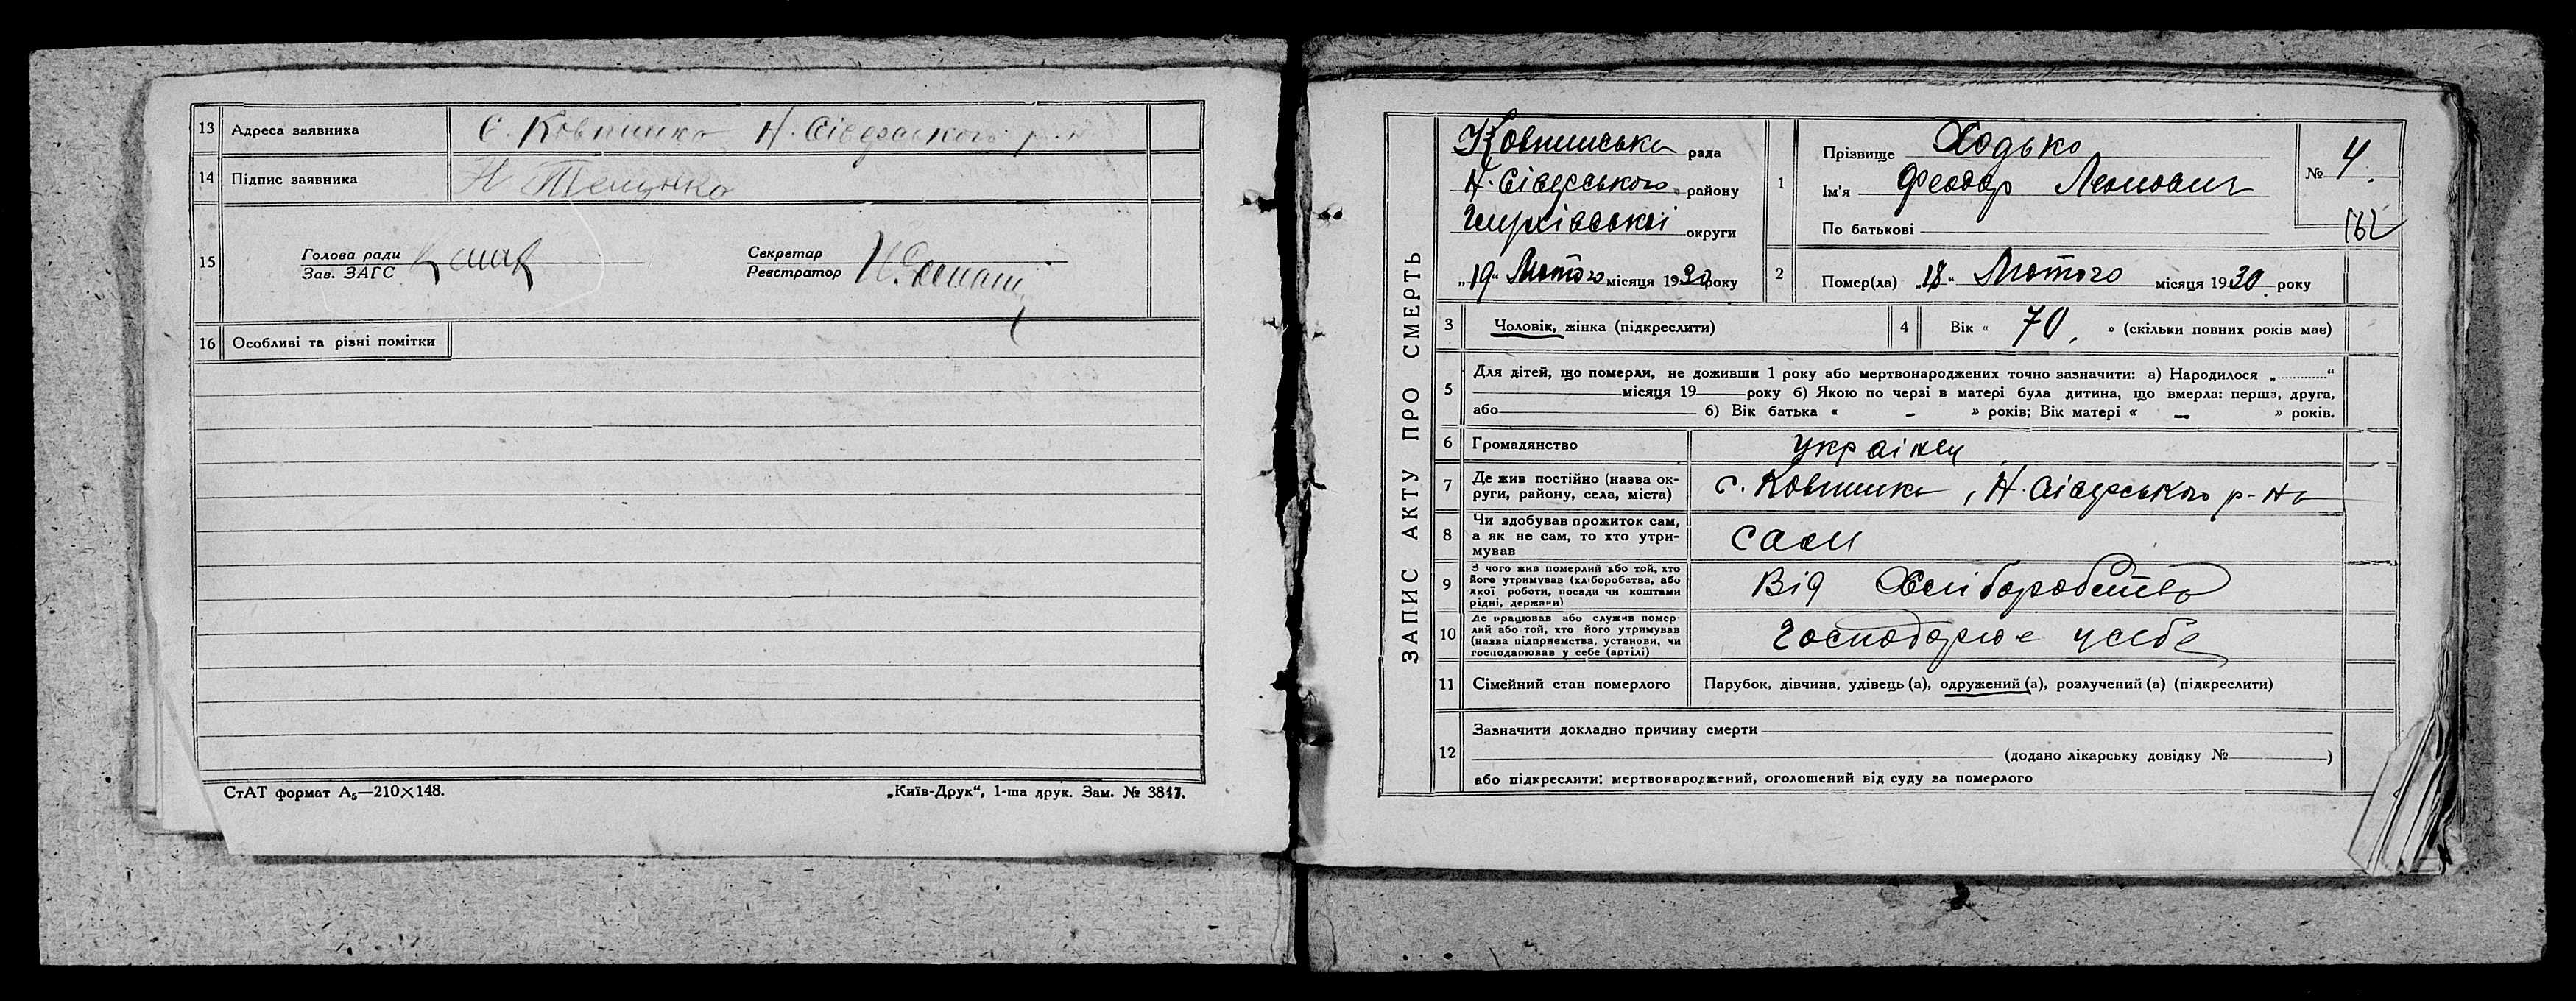 13 Адреса заявника с. Ковпинка Н. Сіверського р-н
14 Підпис заявника
15 Голова ради
Зав. ЗАГС
Секретар
Реєстратор
16 Особливі та різні помітки
СтАТ формат А₅—210×148.
„Київ-Друк“, 1-ша друк. Зам. № 3847.
ЗАПИС АКТУ ПРО СМЕРТЬ
Ковпинська рада
Н. Сіверського району
округи
„19“ Лютого місяця 1930 року
1 Прізвище Ходько
Ім'я Феодор Леонович
По батькові
№ 4
162
2 Помер(ла) „18“ Лютого місяця 1930 року
3 Чоловік, жінка (підкреслити)
4 Вік « 70 » (скільки повних років має)
5 Для дітей, що померли, не доживши 1 року або мертвонароджених точно зазначити: а) Народилося „..........“
місяця 19 року б) Якою по черзі в матері була дитина, що вмерла: перша, друга,
або б) Вік батька « – » років; Вік матері « – » років.
6 Громадянство українец
7 Де жив постійно (назва ок-
руги, району, села, міста) с. Ковпинка, Н. Сіверського р-на
8 Чи здобував прожиток сам,
а як не сам, то хто утри-
мував сам
9 З чого жив померлий або той, хто
його утримував (хліборобства, або
якої роботи, посади чи коштами
рідні, держави) Від Хліборобства
10 Де працював або служив помер-
лий або той, хто його утримував
(назва підприємства, установи, чи
господарював у себе (артілі) Господарює у себе
11 Сімейний стан померлого Парубок, дівчина, удівець (а), одружений (а), розлучений (а) (підкреслити)
12 Зазначити докладно причину смерти
(додано лікарську довідку № )
або підкреслити: мертвонароджений, оголошений від суду за померлого